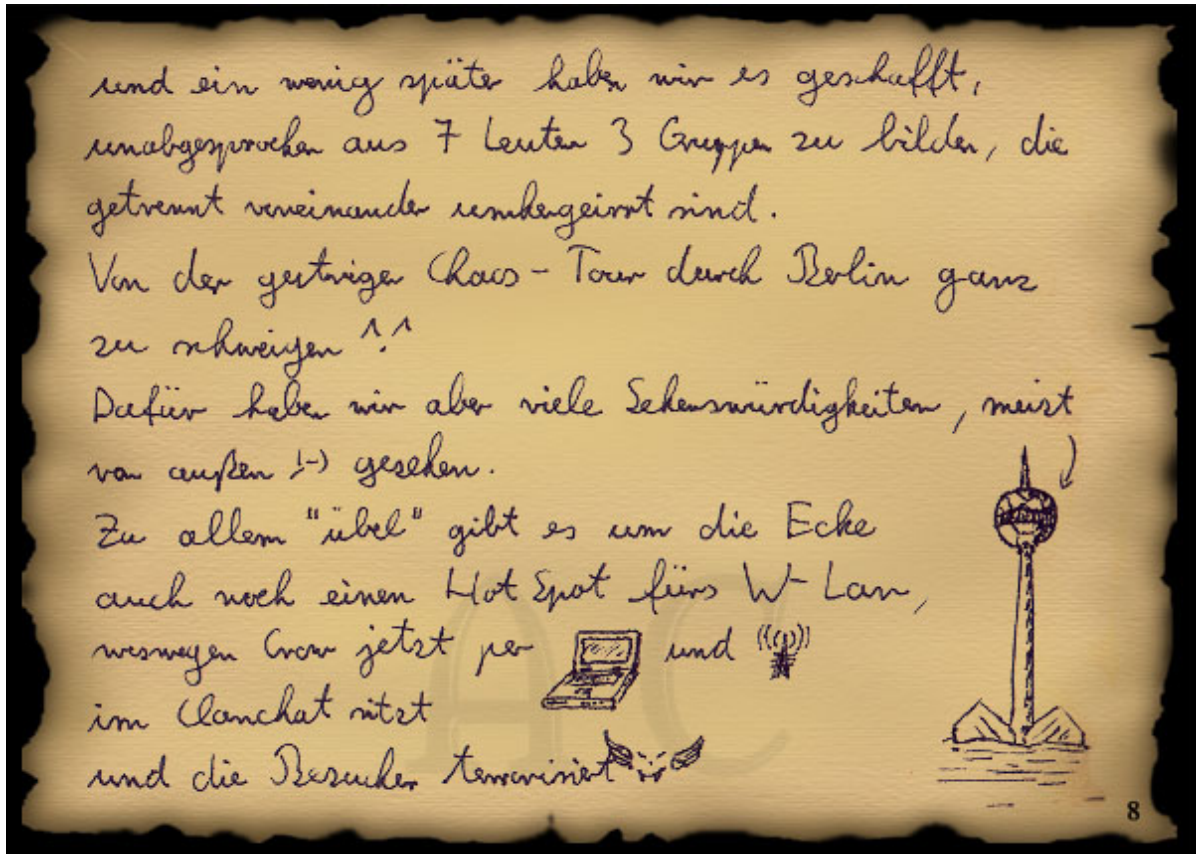 und ein wenig später haben wir es geschafft,
unabgesprochen aus 7 Leuten 3 Gruppen zu bilden, die
getrennt voneinander umhergeirrt sind.
Von der gestrigen Chaos-Tour durch Berlin ganz
zu schweigen ^.^
Dafür haben wir aber viele Sehenswürdigkeiten, meist
von außen ;-) gesehen.
Zu allem "übel" gibt es um die Ecke
auch noch einen Hot Spot fürs W-Lan,
weswegen Crow jetzt per und
im Clanchat sitzt
und die Besucher terrorisiert
AC
8